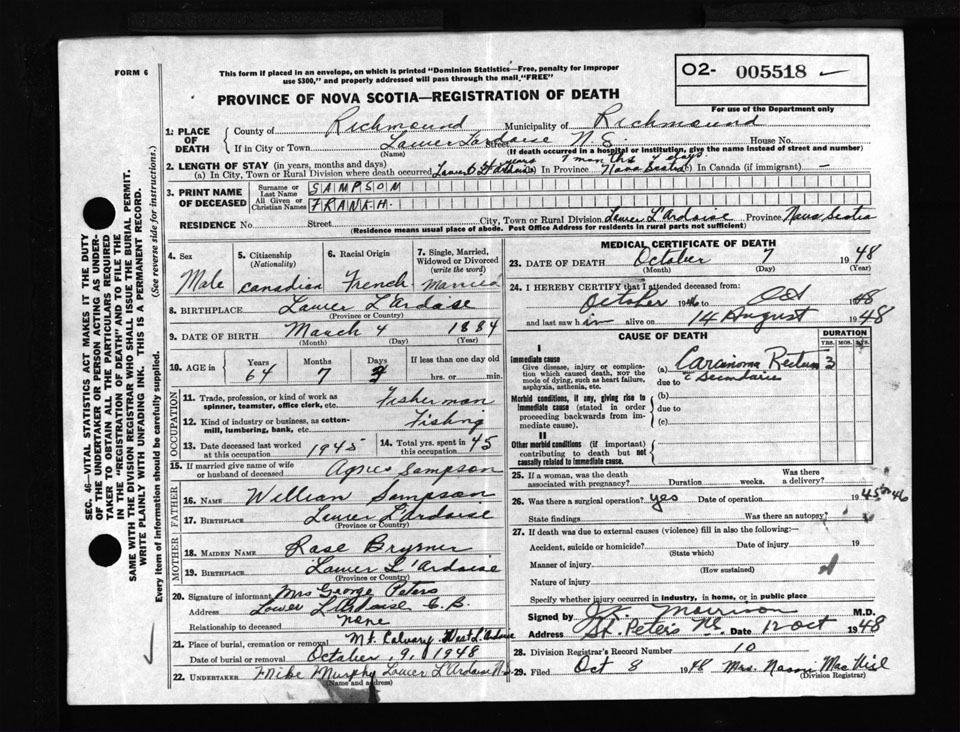 FORM 6
This form if placed in an envelope, on which is printed "Dominion Statistics—Free, penalty for improper
use $300," and properly addressed will pass through the mail "FREE"
O2- 005518
PROVINCE OF NOVA SCOTIA—REGISTRATION OF DEATH
For use of the Department only
1: PLACE OF DEATH
County of Richmound Municipality of Richmound
If in City or Town Lower L'Ardoise Street N. S. House No.
(Name) (If death occurred in a hospital or institution, give the name instead of street and number)
2. LENGTH OF STAY (in years, months and days) years 7 months days.
(a) In City, Town or Rural Division where death occurred (b) In Province Nova Scotia (c) In Canada (if immigrant) —
3. PRINT NAME OF DECEASED
Surname or Last Name SAMPSOM
All Given or Christian Names FRANK H.
RESIDENCE No. Street City, Town or Rural Division Lower L'Ardoise Province Nova Scotia
(Residence means usual place of abode. Post Office Address for residents in rural parts not sufficient)
4. Sex Male
5. Citizenship (Nationality) Canadian
6. Racial Origin French
7. Single, Married, Widowed or Divorced (write the word) Married
8. BIRTHPLACE Lower L'Ardoise
(Province or Country)
9. DATE OF BIRTH March 4 1884
(Month) (Day) (Year)
10. AGE in Years Months Days If less than one day old
64 7 hrs. or min.
OCCUPATION
11. Trade, profession, or kind of work as spinner, teamster, office clerk, etc. Fisherman
12. Kind of industry or business, as cotton-mill, lumbering, bank, etc. Fishing
13. Date deceased last worked at this occupation 1945
14. Total yrs. spent in this occupation 45
15. If married give name of wife or husband of deceased Agnes Sampson
FATHER
16. NAME William Sampson
17. BIRTHPLACE Lower L'Ardoise
(Province or Country)
MOTHER
18. MAIDEN NAME Rose Brymer
19. BIRTHPLACE Lower L'Ardoise
(Province or Country)
20. Signature of informant Mrs George Peters
Address Lower L'Ardoise C. B.
Relationship to deceased none
21. Place of burial, cremation or removal Mt. Calvary West L'Ardoise
Date of burial or removal October, 9, 1948
22. UNDERTAKER Mike Murphy Lower L'Ardoise N.S.
(Name and address)
MEDICAL CERTIFICATE OF DEATH
23. DATE OF DEATH October 7 1948
(Month) (Day) (Year)
24. I HEREBY CERTIFY that I attended deceased from:
October 1946 to Oct 1948
and last saw him alive on 14 August 1948
CAUSE OF DEATH
DURATION
YRS. MOS. DYS.
I
Immediate cause
Give disease, injury or complication which caused death, not the mode of dying, such as heart failure, asphyxia, asthenia, etc.
(a) Carcinoma Rectum 3
due to
Morbid conditions, if any, giving rise to immediate cause (stated in order proceeding backwards from immediate cause).
(b)
due to
(c)
II
Other morbid conditions (if important) contributing to death but not causally related to immediate cause.
25. If a woman, was the death associated with pregnancy? Duration weeks. Was there a delivery?
26. Was there a surgical operation? yes Date of operation 1945 or 46
State findings Was there an autopsy?
27. If death was due to external causes (violence) fill in also the following:—
Accident, suicide or homicide? Date of injury 19
(State which)
Manner of injury
(How sustained)
Nature of injury
Specify whether injury occurred in industry, in home, or in public place
Signed by Morrison M.D.
Address St. Peter's NS Date 12 Oct 1948
28. Division Registrar's Record Number 10
29. Filed Oct 8 1948 Mrs. Naomi Mac
(Division Registrar)
SEC. 46—VITAL STATISTICS ACT MAKES IT THE DUTY
OF THE UNDERTAKER OR PERSON ACTING AS UNDER-
TAKER TO OBTAIN ALL THE PARTICULARS REQUIRED
IN THE "REGISTRATION OF DEATH" AND TO FILE THE
SAME WITH THE DIVISION REGISTRAR WHO SHALL ISSUE THE BURIAL PERMIT.
WRITE PLAINLY WITH UNFADING INK. THIS IS A PERMANENT RECORD.
Every item of information should be carefully supplied. (See reverse side for instructions.)